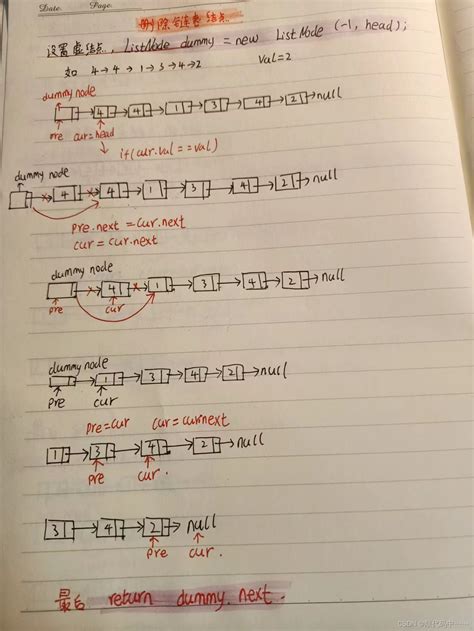 Date. Page.
删除链表结点
设置虚结点, ListNode dummy = new ListNode (-1, head);
如 4→4→1→3→4→2 val=2
dummy node
4→4→1→3→4→2→null
pre cur=head
if(cur.val==val)
dummy node
4→4→1→3→4→2→null
pre.next = cur.next
cur = cur.next
dummy node
4→1→3→4→2→null
pre cur
dummy node
1→3→4→2→null
pre cur
pre=cur cur=cur.next
1→3→4→2→null
pre cur.
3→4→2→null
pre cur.
最后 return dummy.next.